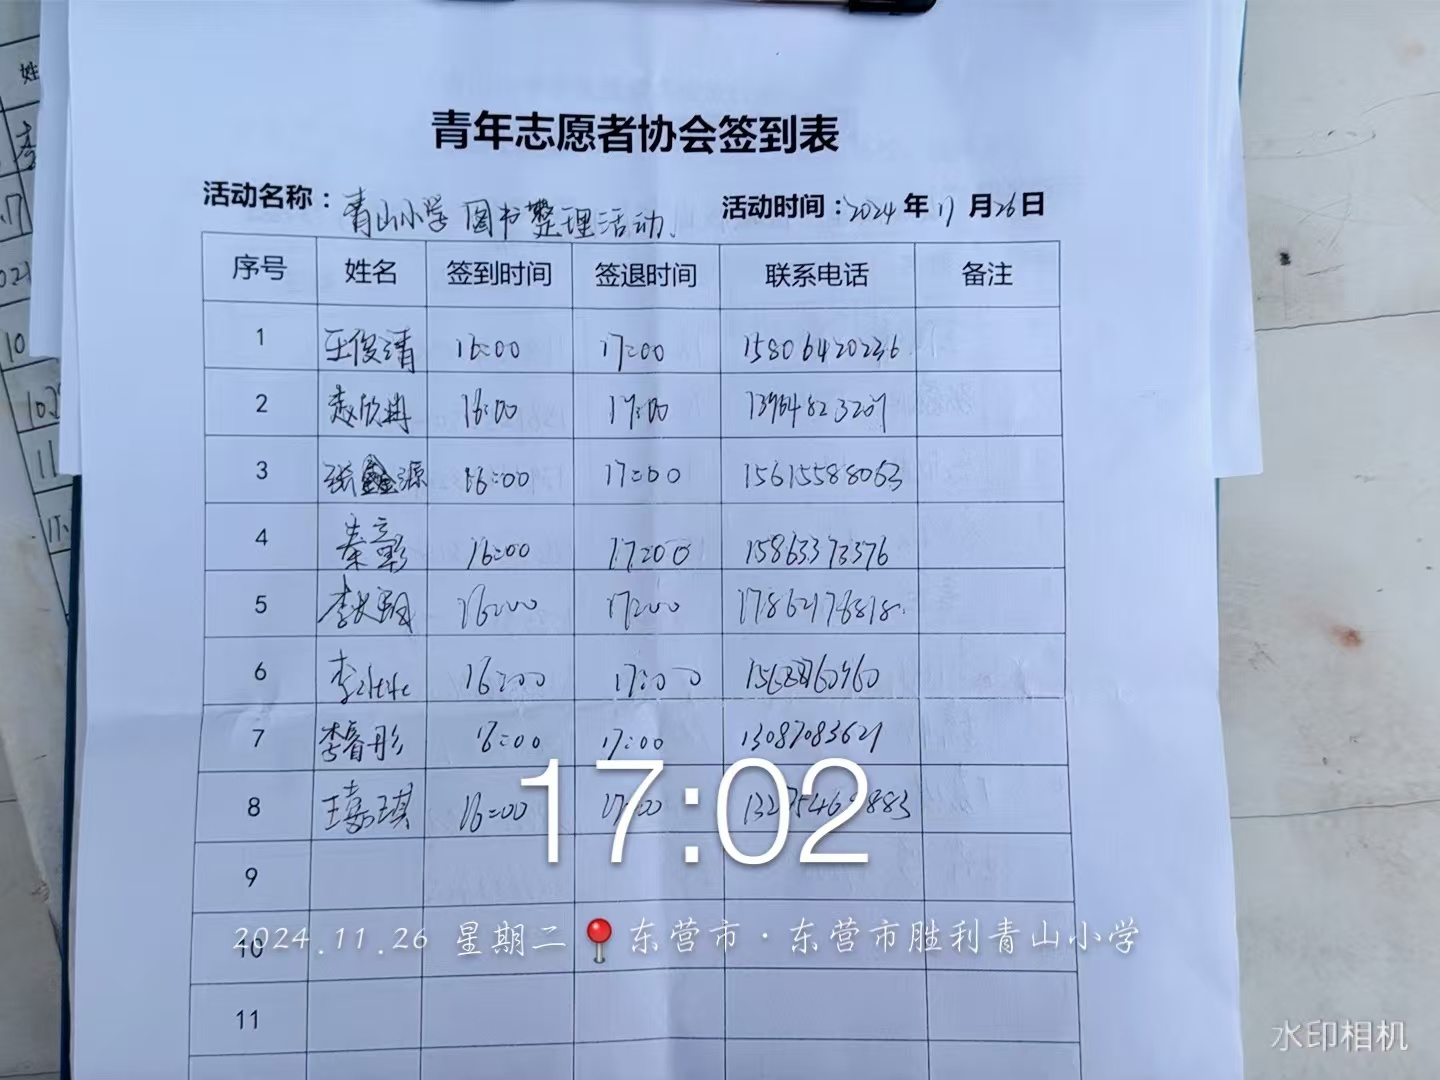 青年志愿者协会签到表
活动名称：青山小学图书整理活动. 活动时间：2024年11月26日
序号 姓名 签到时间 签退时间 联系电话 备注
1 王俊清 16:00 17:00 15806420236
2 赵欣冉 16:00 17:00
3 张鑫源 16:00 17:00 15615588063
4 秦彰 16:00 17:00 15863373376
5 16:00 17:00 17862176818
6 16:00 17:00
7 李睿彤 16:00 17:00 13087083621
8 王嘉琪 16:00 17:00
17:02
9
2024.11.26 星期二 东营市·东营市胜利青山小学
10
11
水印相机